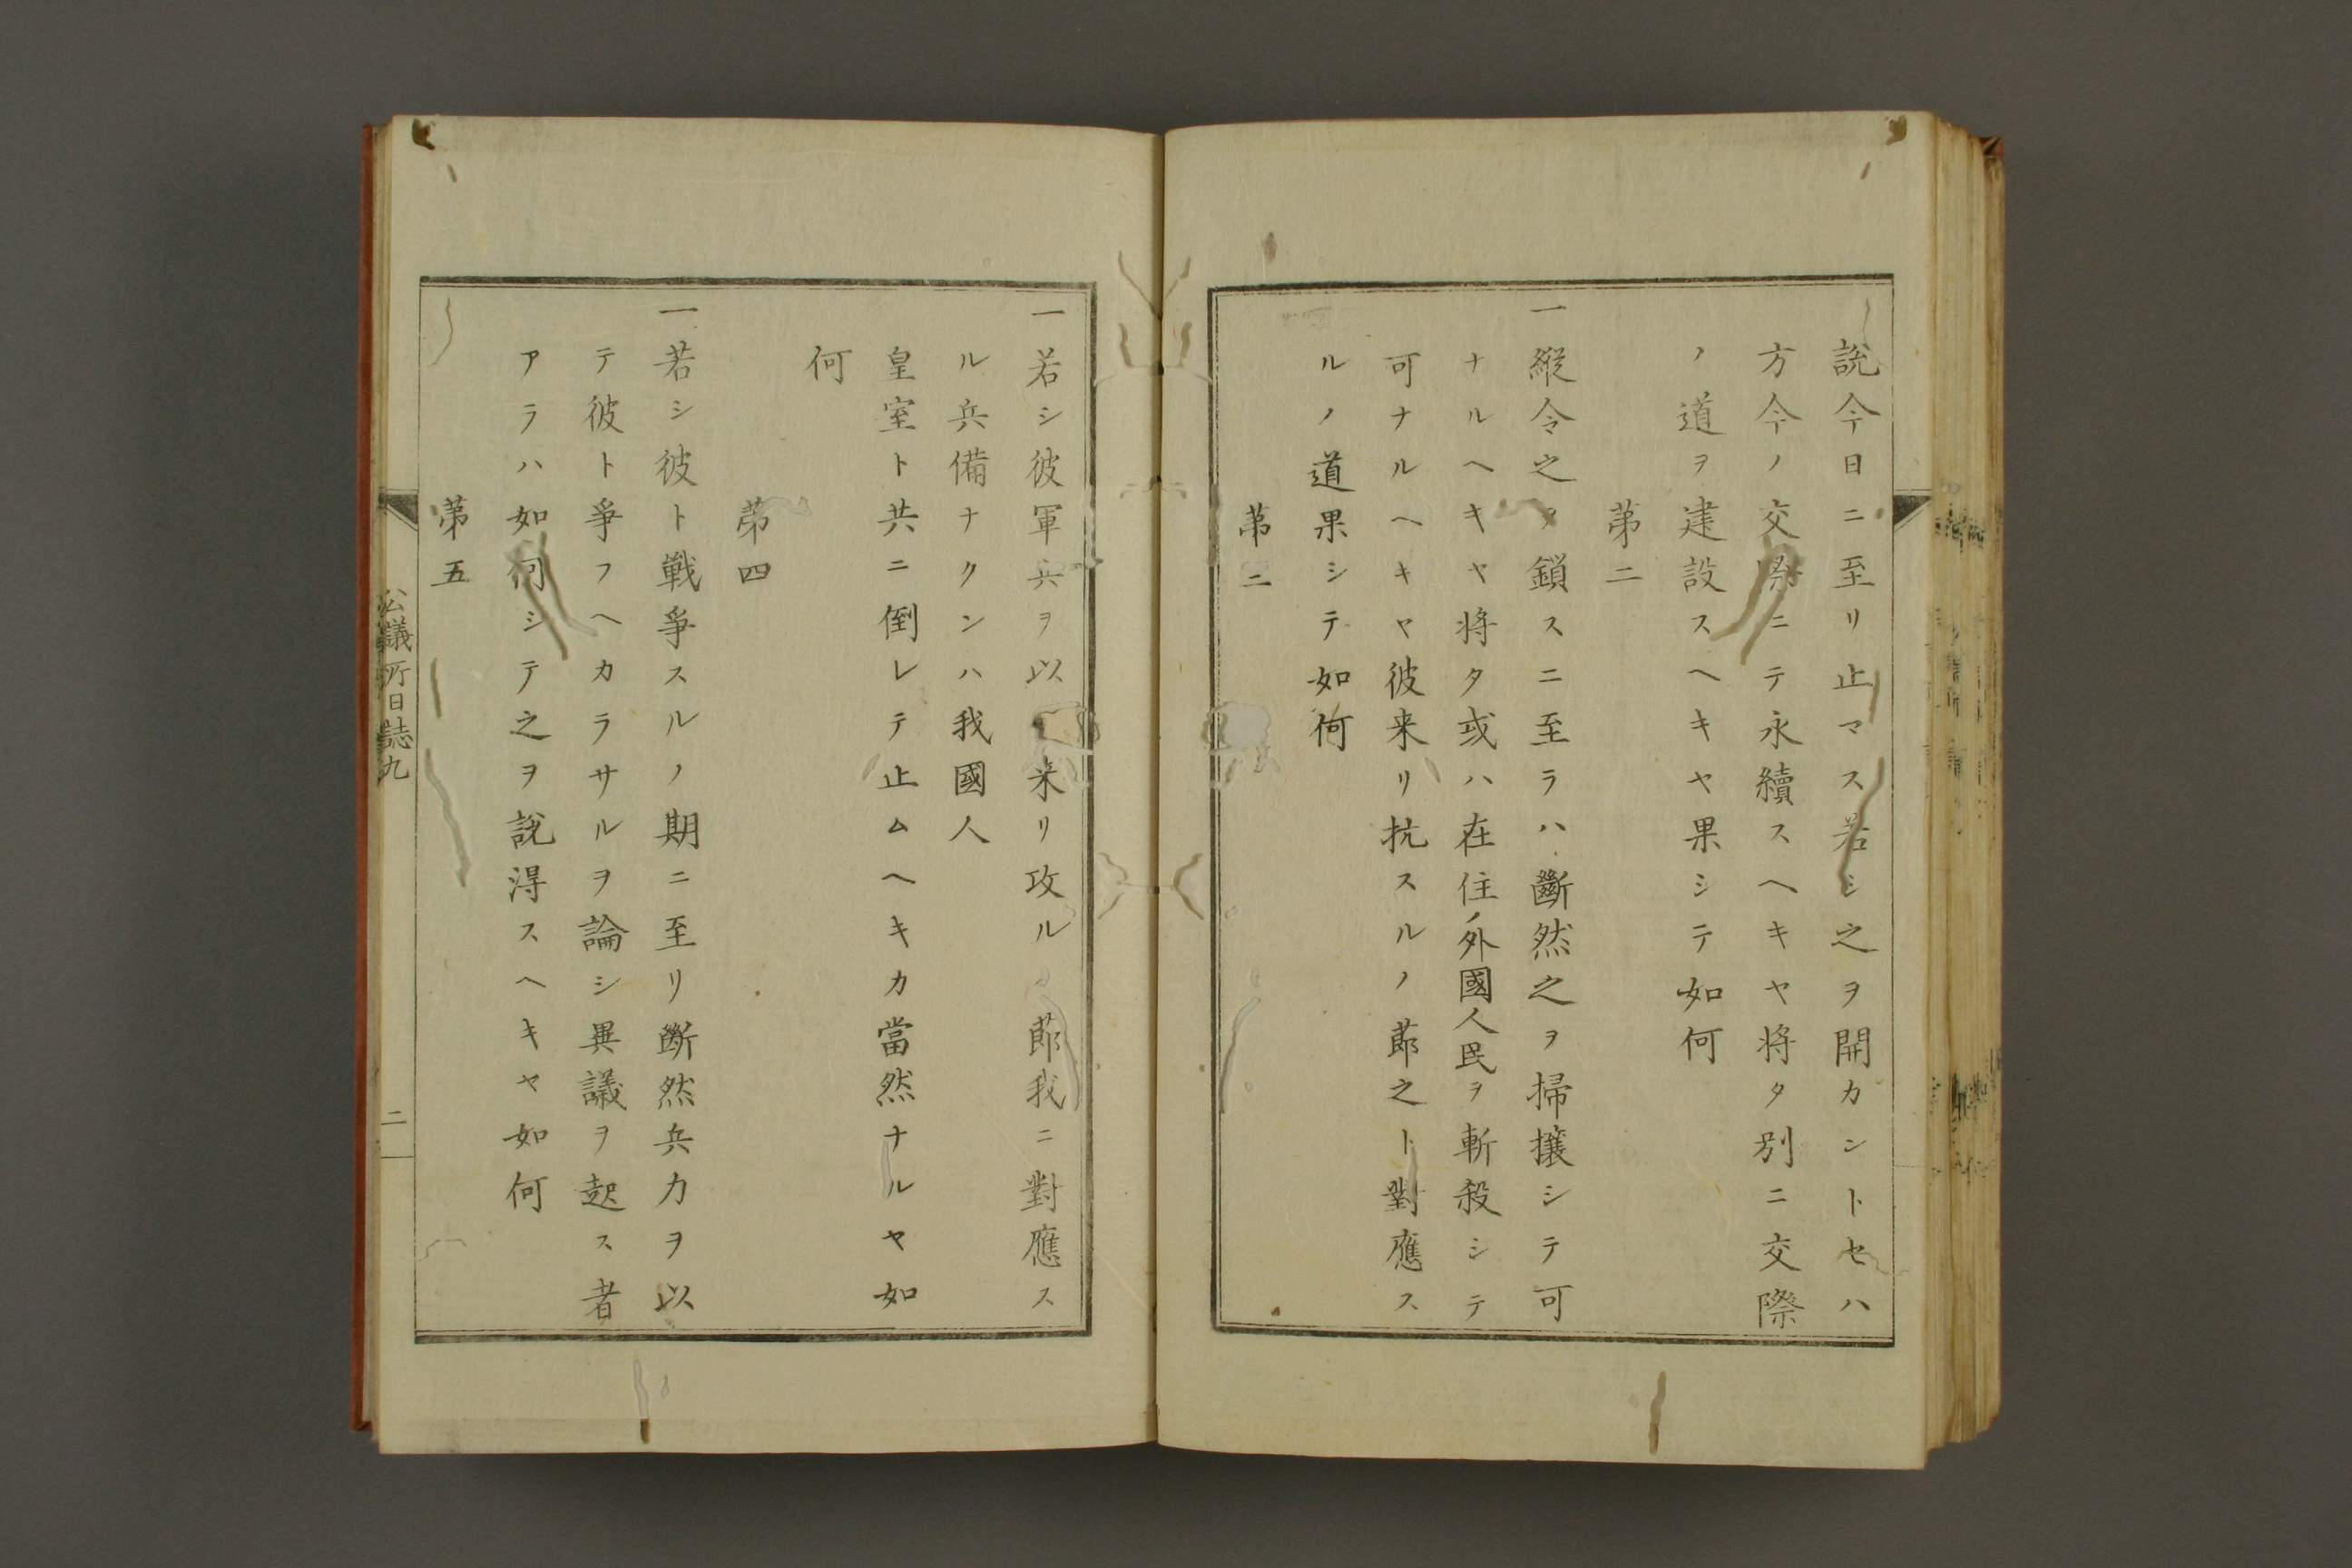 說今日ニ至リ止マス若シ之ヲ開カントセハ
方今ノ交際ニテ永續スヘキヤ将タ別ニ交際
ノ道ヲ建設スヘキヤ果シテ如何
第二
一縦令之ヲ鎖スニ至ラハ斷然之ヲ掃攘シテ可
ナルヘキヤ将タ或ハ在住ノ外國人民ヲ斬殺シテ
可ナルヘキヤ彼来リ抗スルノ莭之ト對應ス
ルノ道果シテ如何
第三
一若シ彼軍兵ヲ以来リ攻ルノ莭我ニ對應ス
ル兵備ナクンハ我國人
皇室ト共ニ倒レテ止ムヘキカ當然ナルヤ如
何
第四
一若シ彼ト戦爭スルノ期ニ至リ斷然兵力ヲ以
テ彼ト爭フヘカラサルヲ論シ異議ヲ起ス者
アラハ如何シテ之ヲ說得スヘキヤ如何
第五
公議所日誌九
二